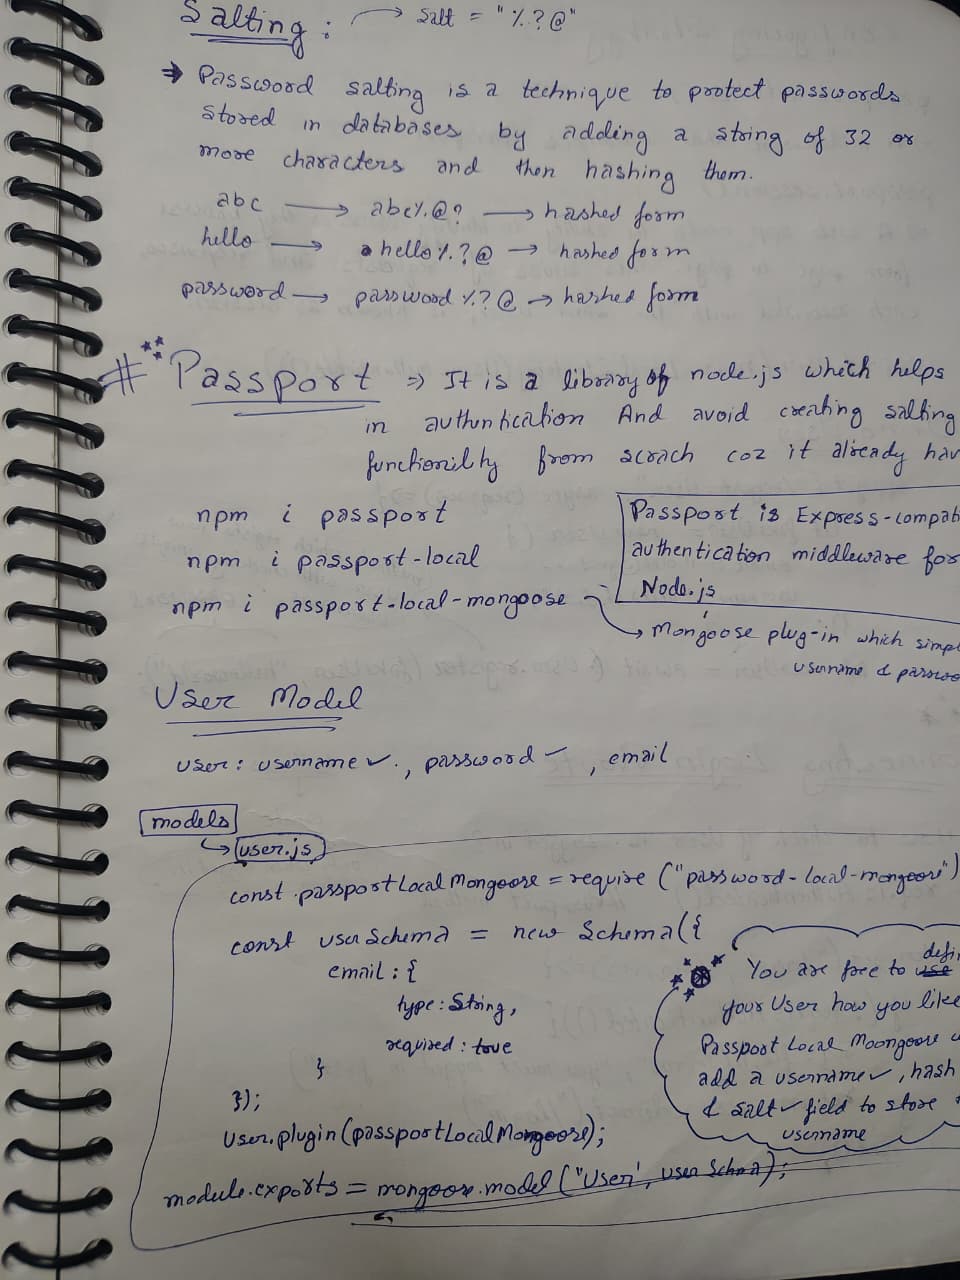 Salting : → Salt = "%?@"
⇒ Password salting is a technique to protect passwords
stored in databases by adding a string of 32 or
more characters and then hashing them.
abc → abc%@? → hashed form
hello → hello%?@ → hashed form
password → password%?@ → hashed form
# Passport ⇒ It is a library of node.js which helps
in authuntication And avoid creating salting
functionility from scrach coz it already hav
npm i passport
npm i passport-local
npm i passport-local-mongoose
Passport is Express-compat
authentication middleware for
Node.js
→ Mongoose plug-in which simpl
username & passwo
User Model
user : username ✓, password ✓, email
models
↳ user.js
const passportLocalMongoose = require ("password-local-mongoose")
const userSchema = new Schema({
email : {
type : String,
required : true
}
});
User.plugin(passportLocalMongoose);
module.exports = mongoose.model ("User', userSchma);
You are free to defi
your User how you like
Passpost Local Moongoose
add a username ✓, hash
& salt ✓ field to store
username